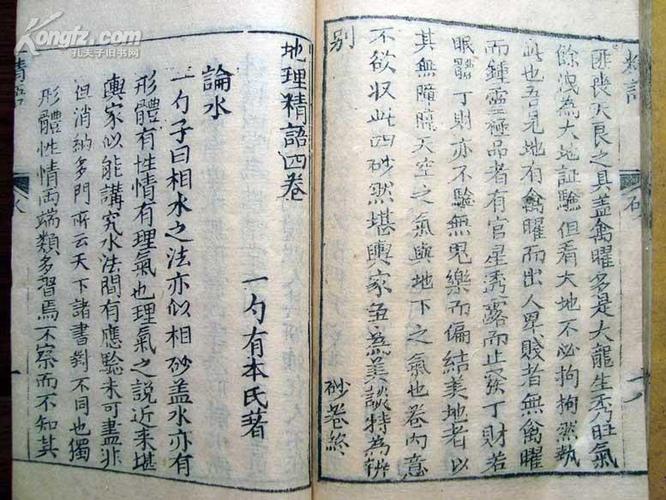 Kongfz.com
孔夫子旧书网
精語
砂
十八
匪喪天良之具盖禽曜多是大龍生秀旺氣
餘洩為大地証驗但看大地不必拘拘然執
此也吾見地有禽曜而出人卑賤者無禽曜
而鍾靈極品者有官星透露而止發丁財若
眼髒丁財亦不驗無鬼樂而偏結美地者以
其無曜曉天空之氣與地下之氣也卷內意
不欲収此四砂然堪輿家並為美談特為辨
别
砂卷終
地理精語四卷
一勺有本氏著
論水
一勺子曰相水之法亦似相砂盖水亦有
形體有性情有理氣也理氣之說近来堪
輿家似能講究水法間有應驗未可盡非
但消納多門所云天下諸書對不同也獨
形體性情両端類多習焉不察而不知其
精語
水
一